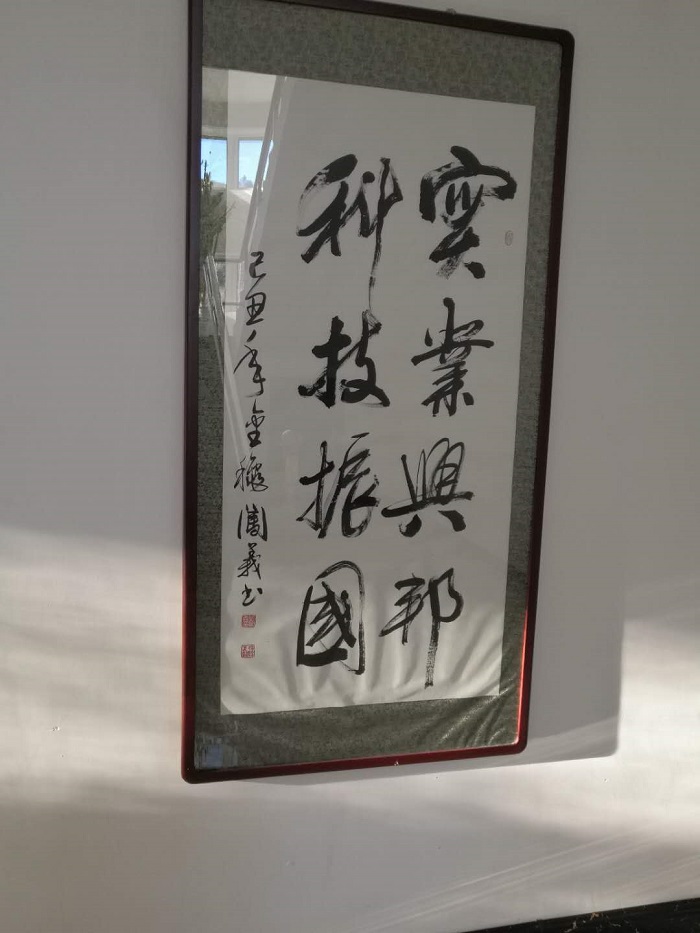 實業興邦
科技振國
己丑年金穐閣義书